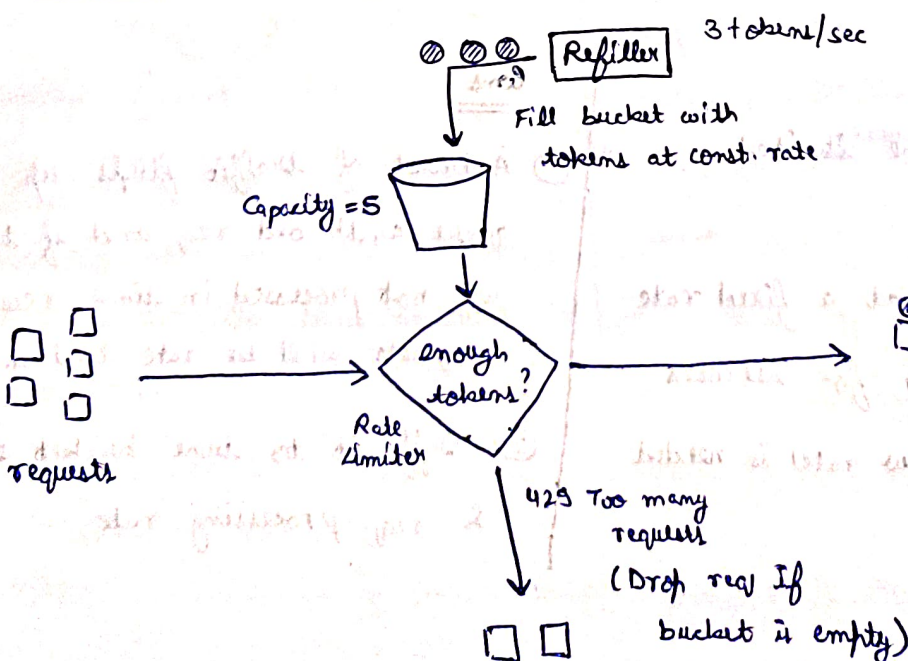 3 tokens/sec
Refiller
Fill bucket with
tokens at const. rate
Capacity = 5
enough
tokens?
Rate
Limiter
requests
429 Too many
requests
(Drop req If
bucket is empty)